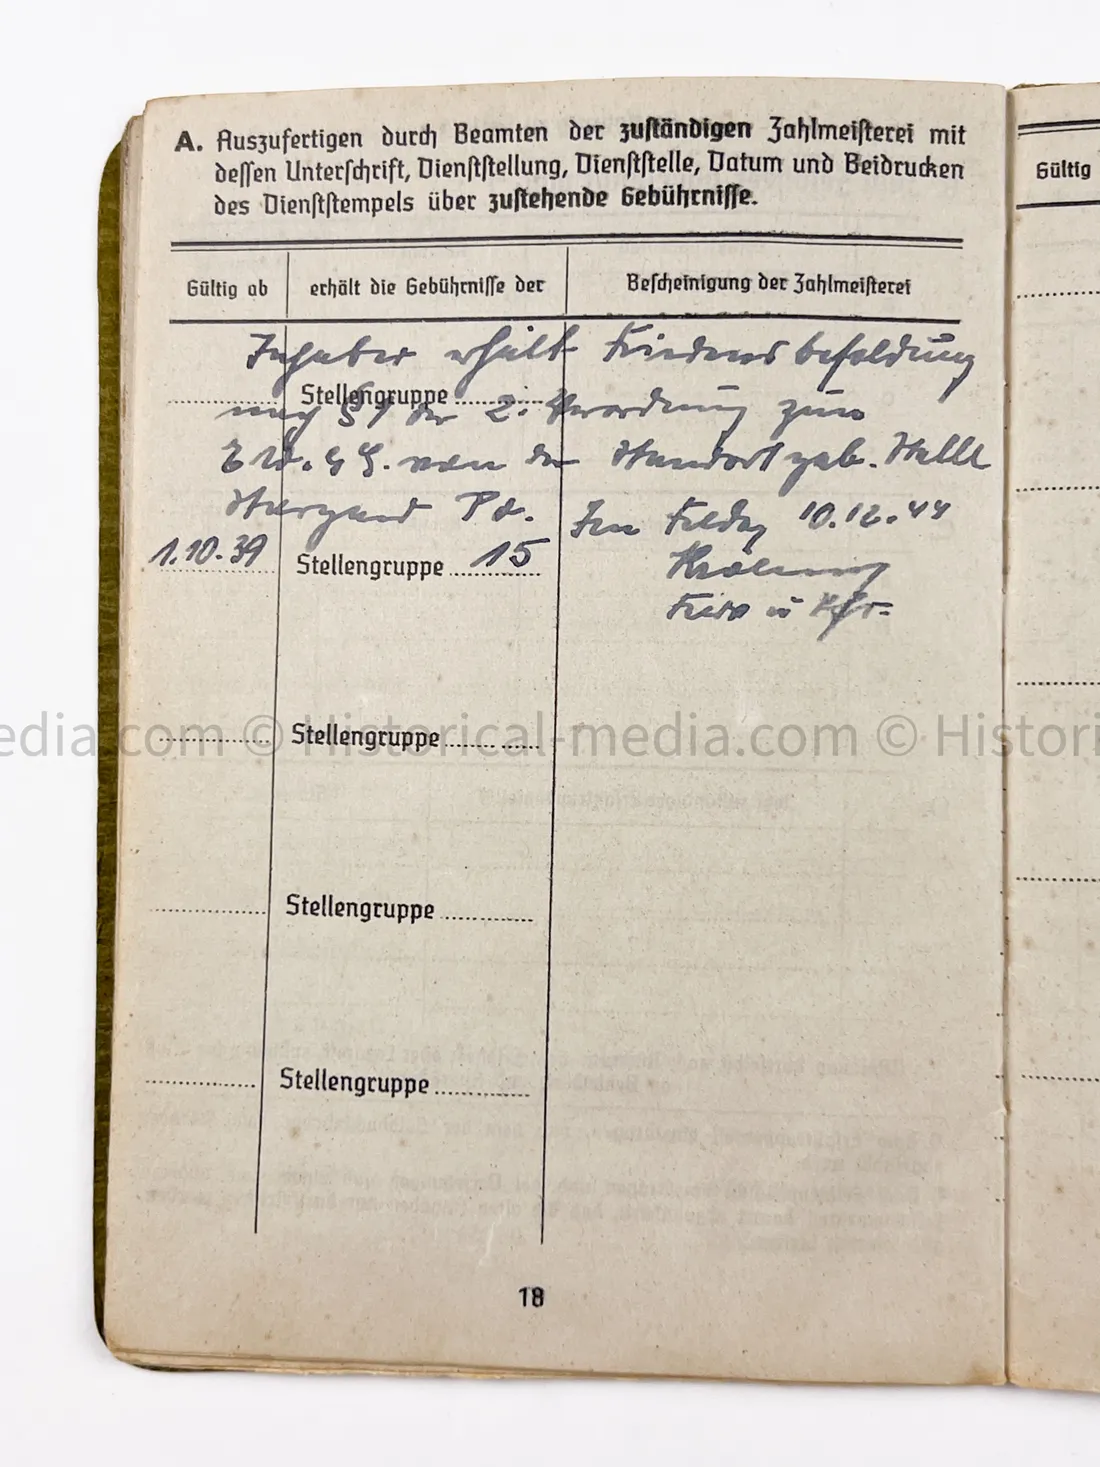 A. Auszufertigen durch Beamten der zuständigen Zahlmeisterei mit
dessen Unterschrift, Dienststellung, Dienststelle, Datum und Beidrucken
des Dienststempels über zustehende Gebührnisse.
Gültig ab
erhält die Gebührnisse der
Bescheinigung der Zahlmeisterei
Inhaber erhält Friedensbesoldung
Stellengruppe
nach § 1 der 2. Verordnung zum
E.W.G.G. von der Standortgeb. Stelle
Stargard Po.
Im Felde, 10.12.44
1.10.39
Stellengruppe 15
Stellengruppe
Stellengruppe
Stellengruppe
18
Gültig
edia.com © Historical-media.com © Histori